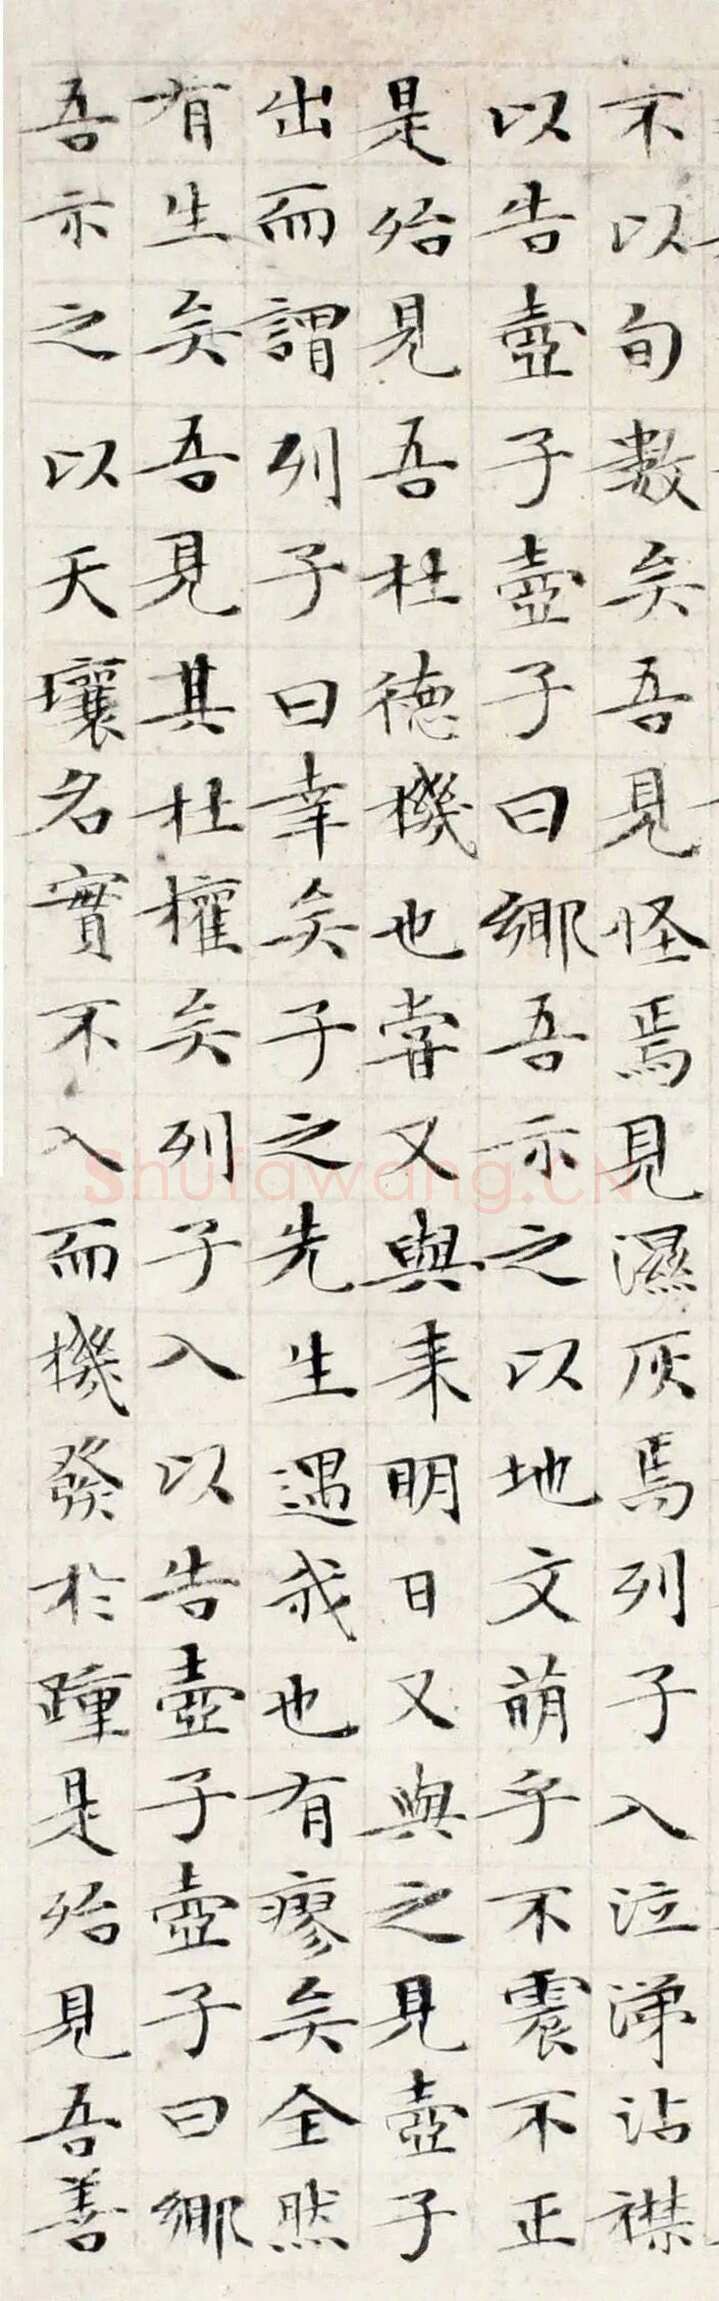 不以旬數矣吾見怪焉見濕灰焉列子入泣涕沾襟
以告壺子壺子曰鄉吾示之以地文萌乎不震不正
是殆見吾杜德機也嘗又與来明日又與之見壺子
出而謂列子曰幸矣子之先生遇我也有瘳矣全然
有生矣吾見其杜權矣列子入以告壺子壺子曰鄉
吾示之以天壤名實不入而機發於踵是殆見吾善
Shufawang.CN